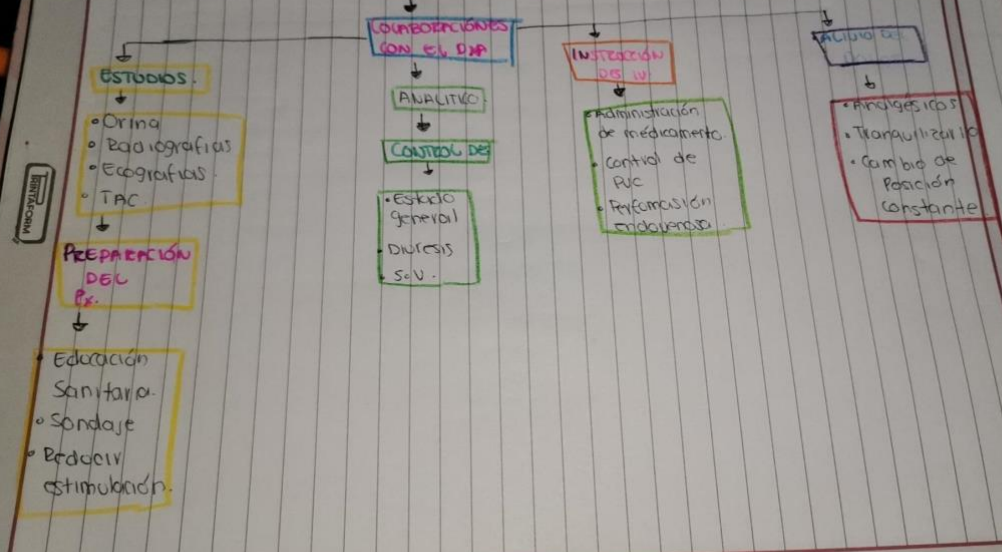 COLABORACIÓNES
CON EL DXP
ESTUDIOS.
• Orina
• Radiografias
• Ecografias.
• TAC.
PREPARACIÓN
DEL
Px.
• Educación
Sanitaria.
• Sondaje
• Reducir
estimulación.
ANALITICO
CONTROL DE
• Estado
general
• Diuresis
• S.V.
INSTRUCCIÓN
DE IV
• Administración
de medicamento.
• Control de
PVC
• endovenosa
• Analgésicos
• Tranquilizar
• Cambio de
Posición
constante
TRINTAFORM